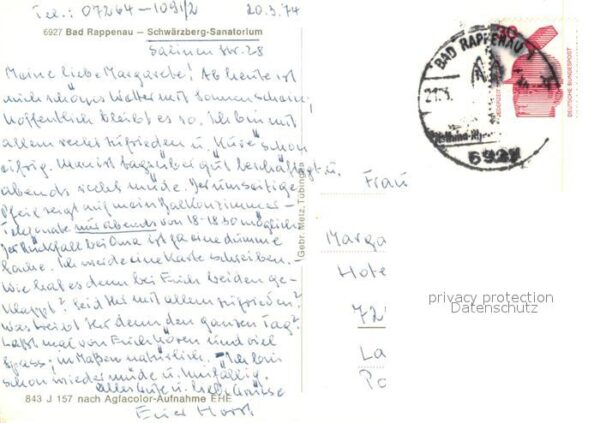 Tel.: 07264-1091/2 20.3.74
6927 Bad Rappenau – Schwärzberg-Sanatorium
Salinenstr. 28
Meine liebe Margarete! Ab heute ist
schönes Wetter mit Sonnenschein,
hoffentlich bleibt es so. Ich bin mit
allem sehr zufrieden u. kure schon
eifrig. Man ist tagsüber gut beschäftigt u.
abends recht müde. Der umseitige
Pfeil zeigt auf mein Balkonzimmer –
Telefonate nur abends von 18-18.30 möglich.
Der Rückfall bei Oma ist ja eine dumme
Sache. Ich werde eine Karte schreiben. –
Wie hat es denn bei Euch beiden ge-
klappt? Seid Ihr mit allem zufrieden?
Was treibt Ihr denn den ganzen Tag?
Laßt mal von Euch hören und viel
Spass, in Maßen natürlich. – Ich bin
schon wieder müde u.
Alles Gute u. liebe Grüße
Euer Horst
843 J 157 nach Agfacolor-Aufnahme EHE
Gebr. Metz, Tübingen
BAD RAPPENAU
6927
30
DEUTSCHE BUNDESPOST
Frau
Marga
Hote
72
La
Po
privacy protection
Datenschutz